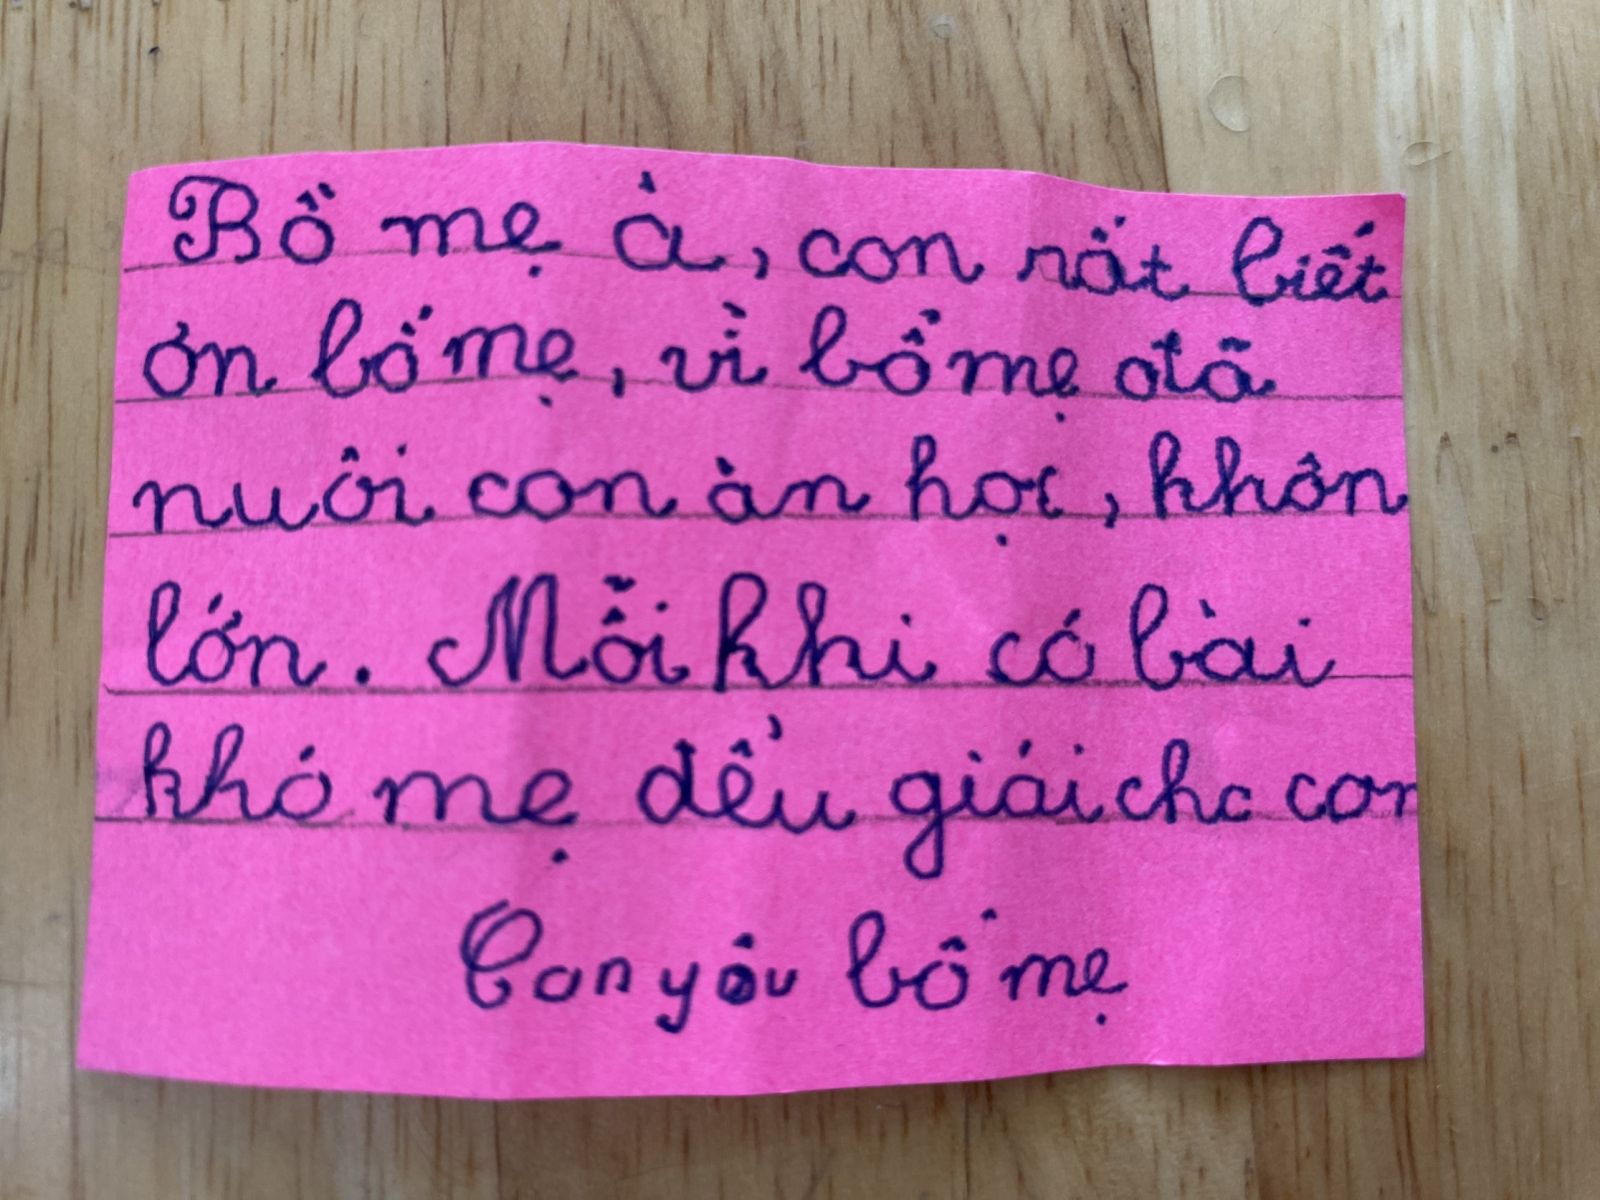 Bố mẹ à, con rất biết
ơn bố mẹ, vì bố mẹ đã
nuôi con ăn học, khôn
lớn. Mỗi khi có bài
khó mẹ đểu giải cho con
Con yêu bố mẹ